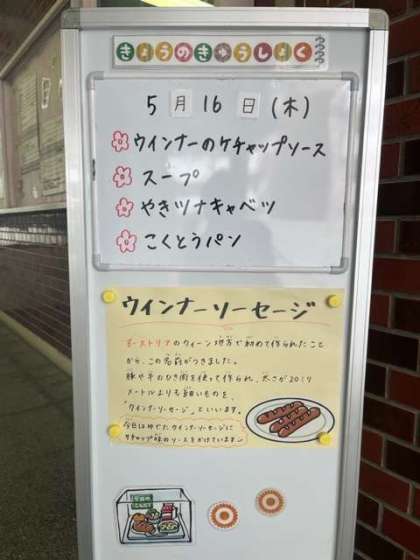 きょうのきゅうしょく
5月16日(木)
ウインナーのケチャップソース
スープ
やきツナキャベツ
こくとうパン
ウインナーソーセージ
オーストリアのウィーン地方で初めて作られたこと
から、この名前がつきました。
豚や羊のひき肉を使って作られ、太さが20ミリ
メートルよりも細いものを、
「ウインナーソーセージ」といいます。
今日はゆでたウインナーソーセージに
ケチャップ味のソースをかけています。